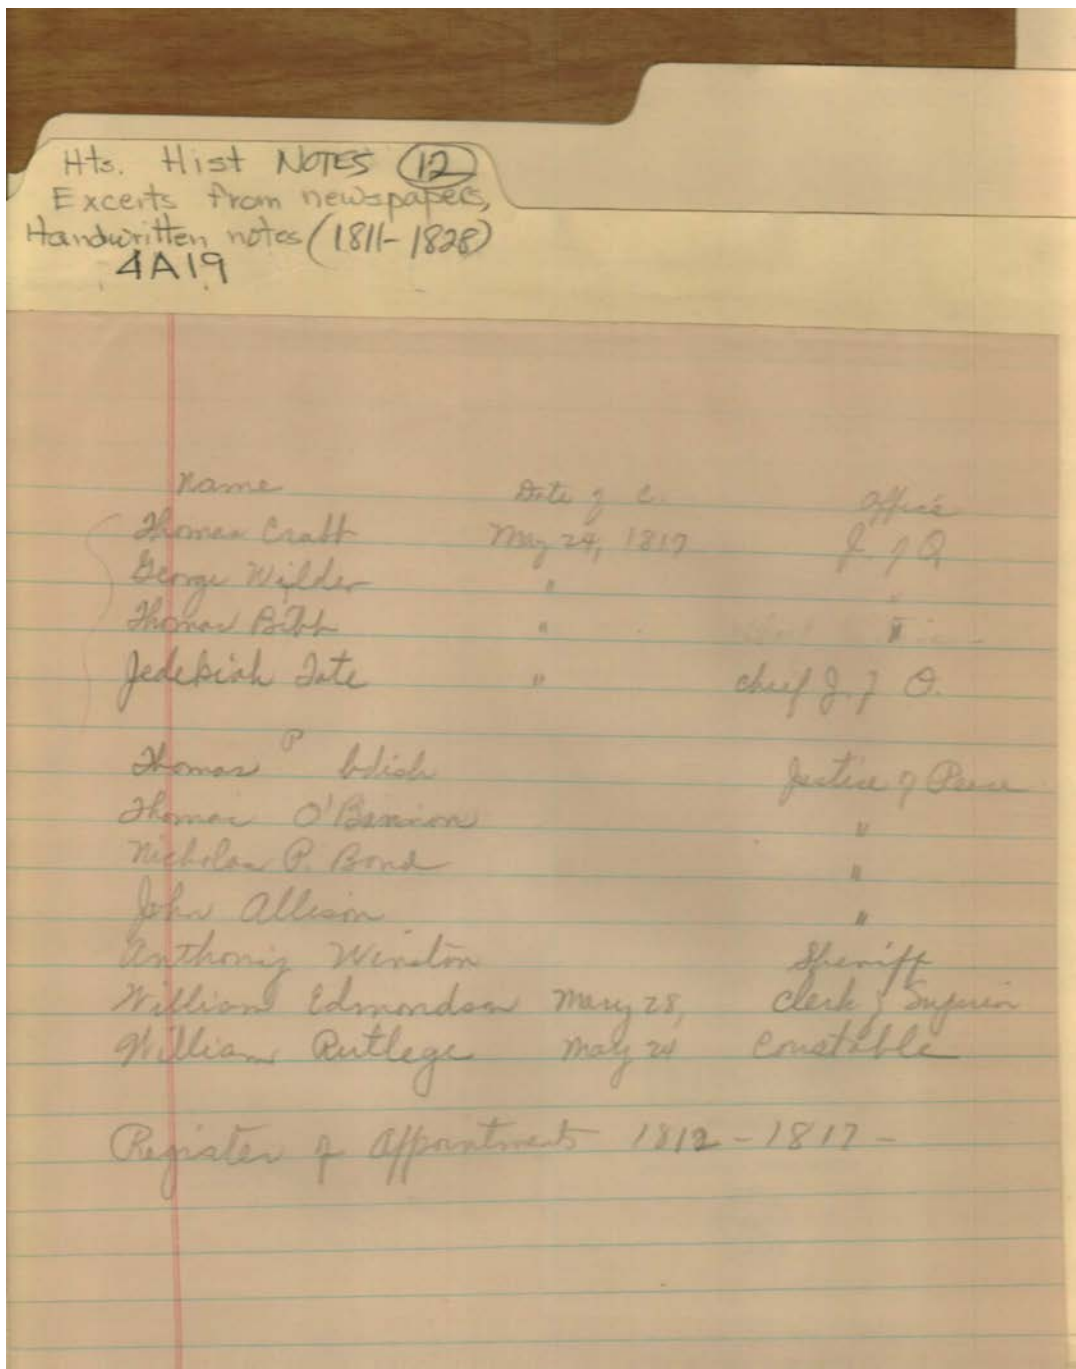 Hts. Hist NOTES 12
Excerts from newspapers,
Handwritten notes (1811-1828)
4A19
Name Date of C. Office
Thomas Craft May 24, 1817 J. of Q
George Wilder " "
Thomas Bibb " "
Jedekiah Tate " chief J. of O.
Thomas P Justice of Peace
Thomas O'Bannion "
Nicholas P. Bond "
John Allison "
Anthony Winston Sheriff
William Edmondson May 28, Clerk of Superior
William Rutlege May 24 Constable
Register of Appointments 1812-1817-